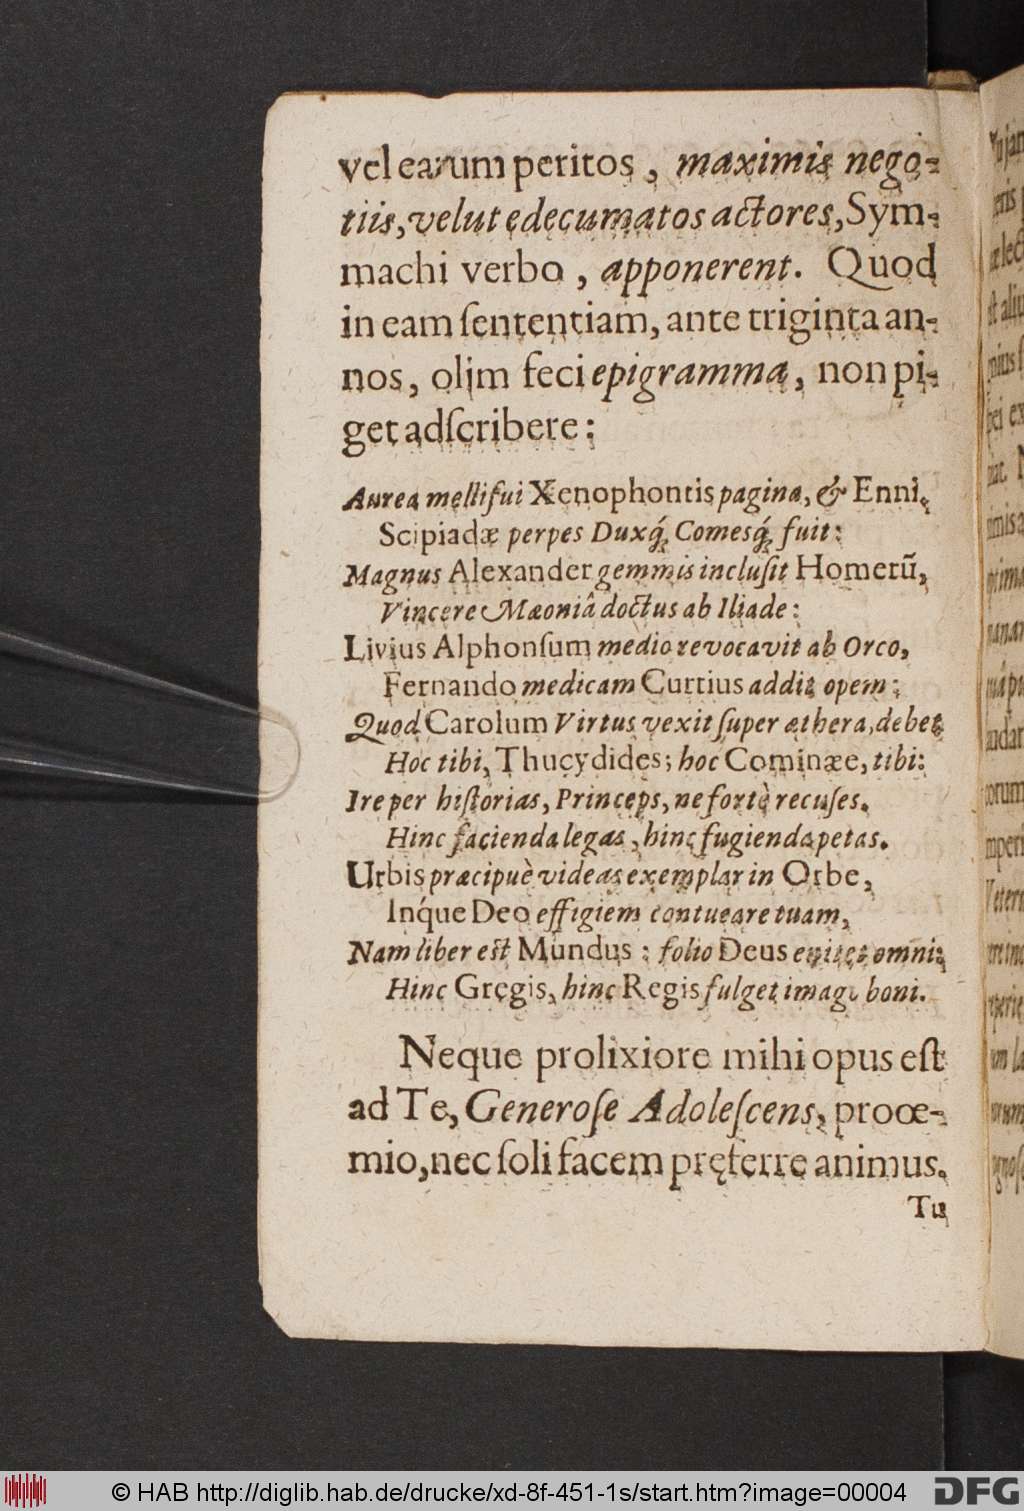 vel earum peritos, maximis nego-
tiis, velut ędecumatos actores, Sym-
machi verbo, apponerent. Quod
in eam ſententiam, ante triginta an-
nos, olim feci epigramma, non pi-
get adſcribere:
Aurea mellifui Xenophontis pagina, & Enni,
Scipiadæ perpes Duxq́; Comesq́; fuit:
Magnus Alexander gemmis incluſit Homerũ,
Vincere Mæoniâ doctus ab Iliade:
Livius Alphonſum medio revocavit ab Orco,
Fernando medicam Curtius addit opem:
Quod Carolum Virtus vexit ſuper æthera, debet
Hoc tibi, Thucydides; hoc Cominæe, tibi:
Ire per hiſtorias, Princeps, ne fortè recuſes.
Hinc facienda legas, hinc fugienda petas.
Urbis præcipuè videas exemplar in Orbe,
Inq́ue Deo effigiem contueare tuam,
Nam liber eſt Mundus: folio Deus enitet omni;
Hinc Gregis, hinc Regis fulget imago boni.
Neque prolixiore mihi opus eſt
ad Te, Generoſe Adoleſcens, prooe-
mio, nec ſoli facem pręferre animus.
Tu
© HAB http://diglib.hab.de/drucke/xd-8f-451-1s/start.htm?image=00004
DFG